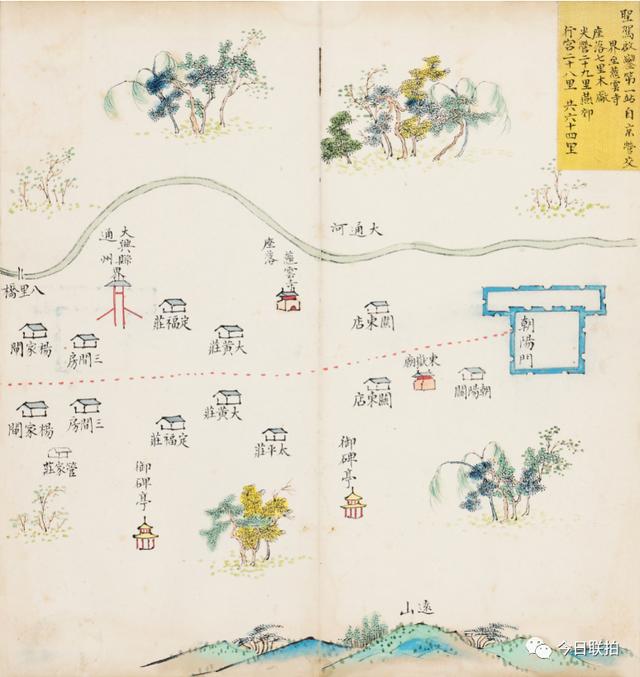 聖駕啟鑾第一站自京營交
界至慈雲寺
座落七里木廠
尖營二十九里燕郊
行宮二十八里 共六十四里
大通河
慈雲寺
座落
大興縣界
通州
八里橋
朝陽門
關東店
定福莊
大黃莊
三間房
楊家閘
東嶽廟
朝陽關
關東店
大黃莊
定福莊
三間房
楊家閘
太平莊
管家莊
御碑亭
御碑亭
遠山
今日联拍